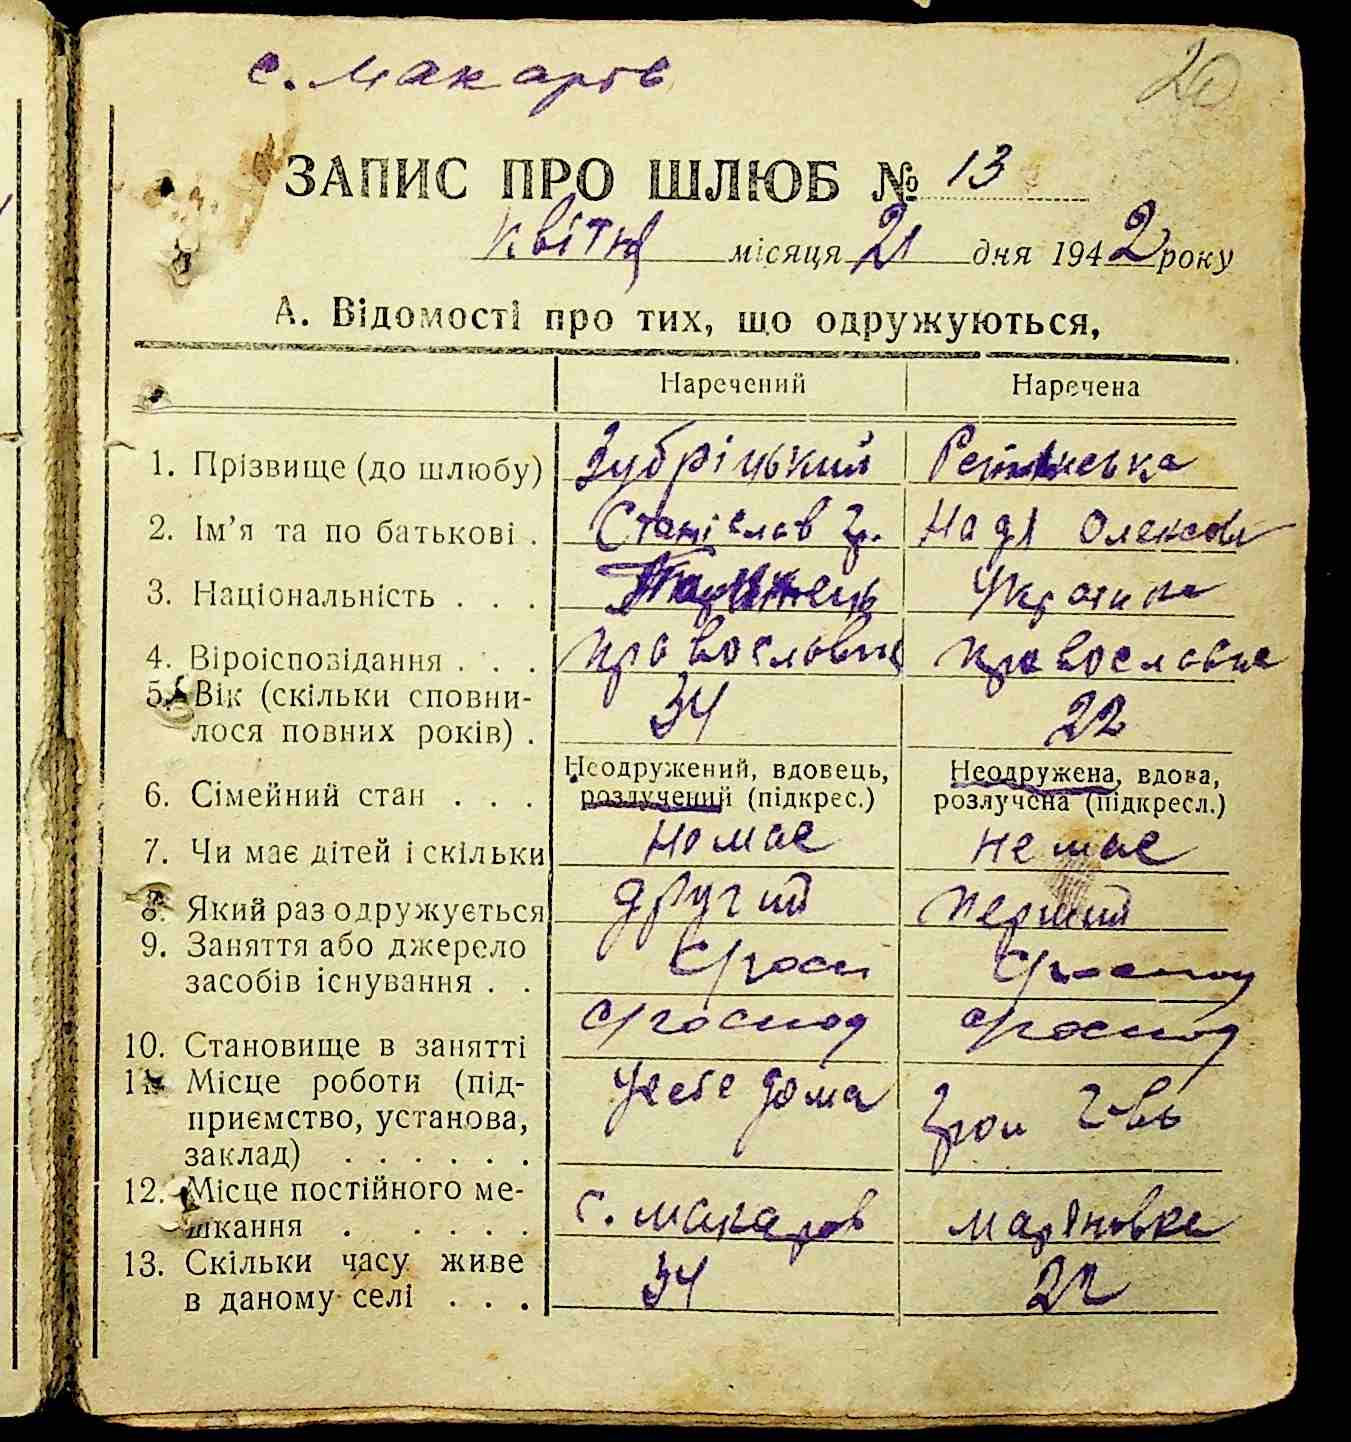 с. Макарів
20
ЗАПИС ПРО ШЛЮБ № 13
квітня місяця 21 дня 1942 року
А. Відомості про тих, що одружуються,
Наречений Наречена
1. Прізвище (до шлюбу) Зубріцький
2. Ім’я та по батькові . Станіслав Гр. Надя Олексов
3. Національність . . . Украинка
4. Віроісповідання . . . православне православне
5. Вік (скільки сповни-
лося повних років) . 34 22
6. Сімейний стан . . . Неодружений, вдовець, розлучений (підкрес.) Неодружена, вдова, розлучена (підкресл.)
7. Чи має дітей і скільки немає немає
8. Який раз одружується другий перший
9. Заняття або джерело
засобів існування . .
10. Становище в занятті
11. Місце роботи (під-
приємство, установа, у себе дома
заклад) . . . . . .
12. Місце постійного ме-
шкання . . . . . с. Макаров Мар'яновка
13. Скільки часу живе
в даному селі . . . 34 22